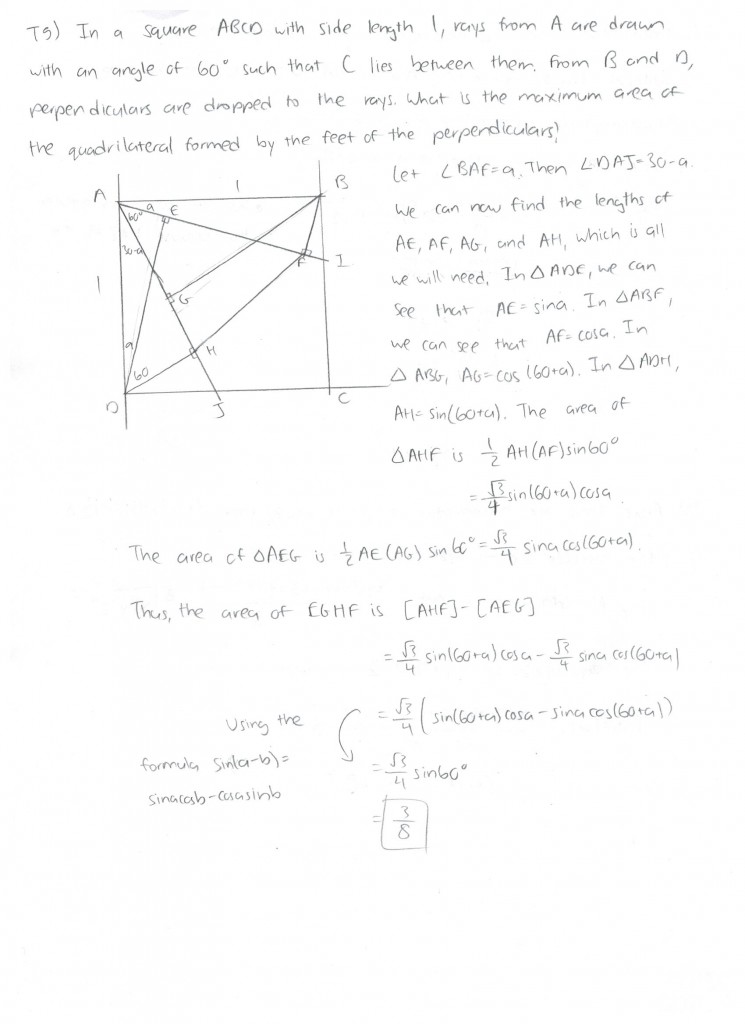 T5) In a square ABCD with side length 1, rays from A are drawn
with an angle of 60° such that C lies between them. From B and D,
perpendiculars are dropped to the rays. What is the maximum area of
the quadrilateral formed by the feet of the perpendiculars?
A
1
B
a
E
60°
30-a
1
F
I
G
a
H
60
D
J
C
Let ∠BAF=a. Then ∠DAJ=30-a.
We can now find the lengths of
AE, AF, AG, and AH, which is all
we will need. In △ADE, we can
see that AE=sina. In △ABF,
we can see that AF=cosa. In
△ABG, AG=cos(60+a). In △ADH,
AH=sin(60+a). The area of
△AHF is 1/2 AH(AF)sin60°
= √3/4 sin(60+a)cosa.
The area of △AEG is 1/2 AE(AG) sin60° = √3/4 sina cos(60+a).
Thus, the area of EGHF is [AHF]-[AEG]
= √3/4 sin(60+a)cosa - √3/4 sina cos(60+a)
= √3/4 (sin(60+a)cosa - sina cos(60+a))
Using the
formula sin(a-b)=
sinacosb-cosasinb
= √3/4 sin60°
= 3/8